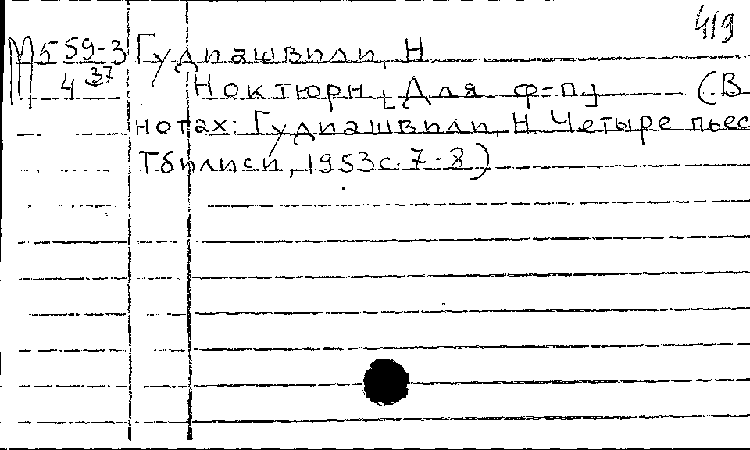 419
М 559-3 Гудиашвили, Н
4 37 Ноктюрн [Для ф-п] (В
нотах: Гудиашвили, Н. Четыре пьес
Тбилиси, 1953 с. 7-8)